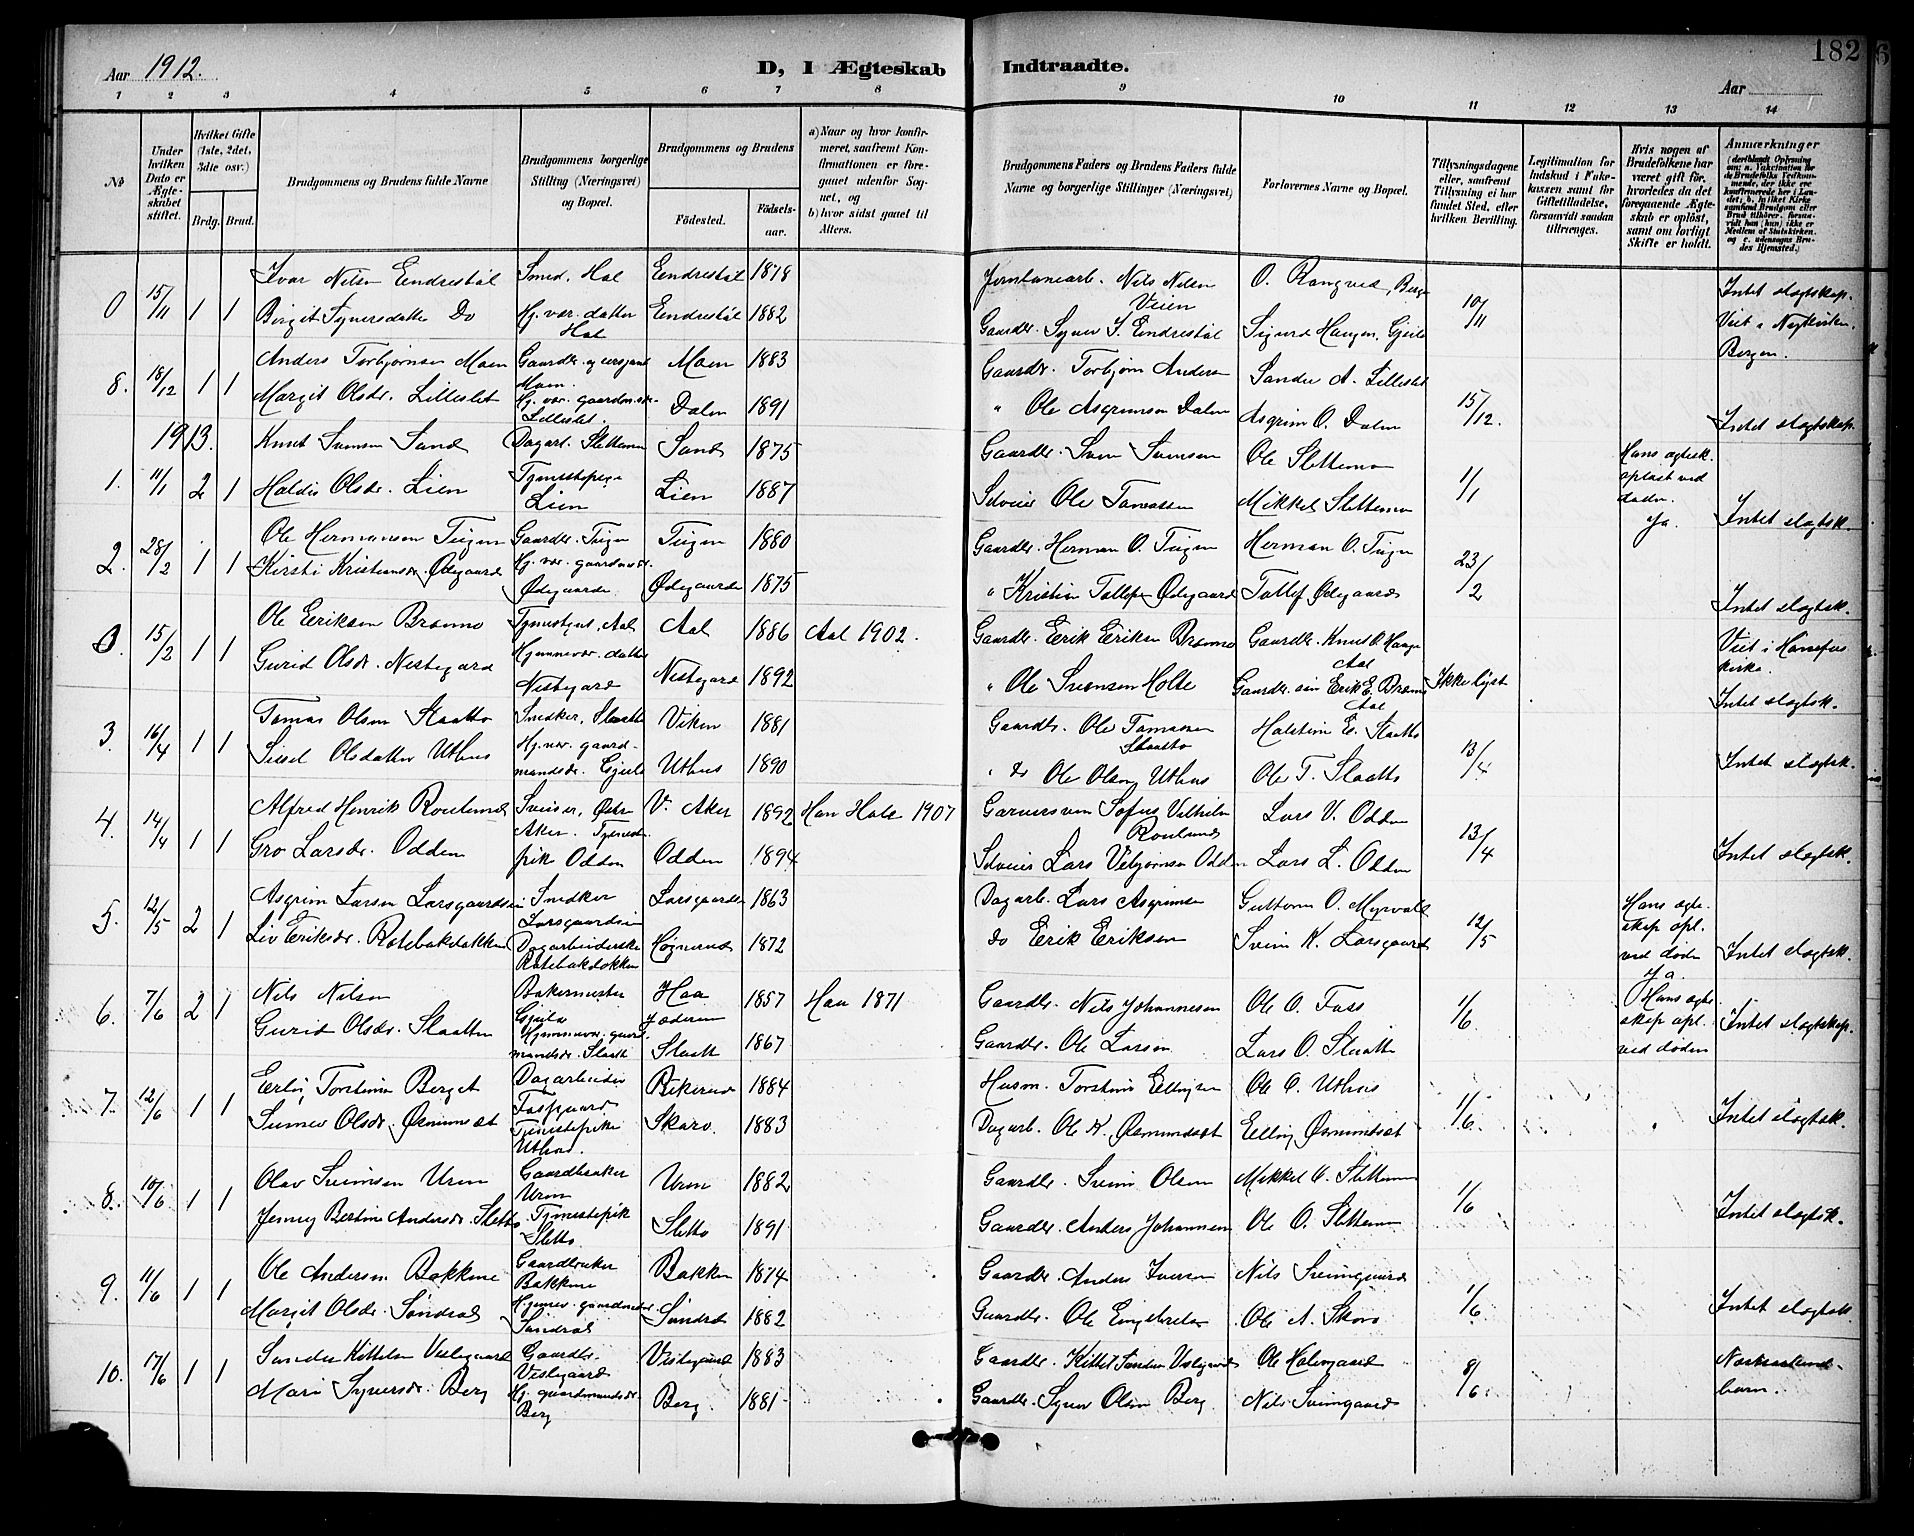 Aar 1912.
D, I Ægteskab
Indtraadte.
182
Aar
1 2 3 4 5 6 7 8
9 10 11 12 13 14
No
Under hvilken Dato er Ægteskabet stiftet.
Hvilket Gifte (1ste, 2det, 3die osv.)
Brdg. Brud.
Brudgommens og Brudens fulde Navne
Brudgommens borgerlige Stilling (Næringsvei) og Bopæl.
Brudgommens og Brudens
Fødested.
Fødselsaar.
a) Naar og hvor konfirmeret, saafremt Konfirmationen er foregaaet udenfor Sognet, og
b) hvor sidst gaaet til Alters.
Brudgommens Faders og Brudens Faders fulde Navne og borgerlige Stillinger (Næringsvei)
Forlovernes Navne og Bopæl.
Tillysningsdagene eller, saafremt Tillysning ei har fundet Sted, efter hvilken Bevilling.
Legitimation for Indskud i Enkekassen samt for Giftetilladelse, forsaavidt saadan tiltrænges.
Hvis nogen af Brudefolkene har været gift før, hvorledes da det foregaaende Ægteskab er opløst, samt om lovligt Skifte er holdt.
Anmærkninger
0 15/11 1 1 Ivar Nilsen Eendrestøl Smed, Hol Eendrestøl 1878 Nils Nilsen Veien O. Rongved, Berge 10/11 Intet slegtskap.
Birgit Synersdatter Do Hj. vær. datter Hol Eendrestøl 1882 Gaardbr. Syver I. Eendrestøl Sigurd Haugen, Gjeilo Viet i Nykirken. Bergen.
8. 18/12 1 1 Anders Torbjørnsen Moen Gaardbr. Moen. Moen 1883 Gaardbr. Torbjørn Andersen Sander A. Lilleslet 15/12.
Margit Olsdr. Lilleslet Hj. vær. Lilleslet. Dalen 1891 " Ole Asgrimsen Dalen Asgrim O. Dalen Intet slegtskap.
1913.
1. 11/1 2 1 Knut Svensen Sand Dagarb. Slettemoen Sand 1875 Gaardbr. Sven Svensen Ole Slettemoen 1/1 Hans ægtesk. opløst ved døden. Ja.
Haldis Olsdr. Lien Lien Lien 1887 Selveier Ole Tomassen Mikkel Slettemoen Intet slegtsk.
2. 28/2 1 1 Ole Hermansen Tuijen Gaardbr. Tuijen 1880 Gaardbr. Herman O. Tuijen Herman O. Tuijen 23/2
Kirsti Kristiansdr. Ødegaard Hj. vær. gaardmdr. Ødegaarde Ødegaarde 1875 " Kristian Tollefsen Ødegaard Tollef Ødegaard Intet slegtsk.
0. 15/2 1 1 Ole Eeriksen Bromo Aal Aal 1886 Aal 1902. Gaardbr. Eerik Eeriksen Bromo Gaardbr. Knut O. Hauge Aal Ikke lyst Viet i Hønefos kirke.
Gurid Olsdr. Nestegard Hjemmevær. datter Nestegard Nestegard 1892 " Ole Svensen Holte Gaardbr. søn Erik E. Bromo Aal Intet slegtsk.
3. 16/4 1 1 Tomas Olsen Slaatto Snedker, Slaatto Viken 1881 Gaardbr. Ole Tomassen Slaatto Halstein E. Slaatto 13/4
Sissel Olsdatter Uthus Hj. vær. gaardmandsdr. Gjeilo Uthus 1890 " do Ole Olsen Uthus Ole T. Slaatto Intet slegtsk.
4. 14/4 1 1 Alfred Henrik Roulund Sveiser, Østr Aker. V. Aker 1892 Han Hole 1907 Garversvend Sofus Vilhelm Roulund Lars V. Odden 13/4
Gro Larsdr. Odden Tjenestepike Odden Odden 1894 Selveier Lars Vebjørnsen Odden Lars L. Odden Intet slegtsk.
5. 12/5 2 1 Asgrim Larsen Larsgaardseie Snedker Larsgaardseie Larsgaarden 1863 Dagarb. Lars Asgrimsen Guttorm O. Myrvoll 12/5 Hans ægteskap opl. ved døden Ja.
Liv Eriksdr. Rotebakdokken Dagarbeiderske Rotebakdokken Høgnerud 1872 do Eerik Eeriksen Svein K. Larsgaard Intet slegtsk.
6. 7/6 2 1 Nils Nilsen Bakermester Gjeilo Haa Jæderen 1857 Haa 1871 Gaardbr. Nils Johannesen Ole O. Foss 1/6. Hans ægteskap opl. ved døden Intet slegtskap.
Gurid Olsdr. Slaatten Hjemmevær. gaardmandsdr. Slaatt Slaatt 1867 Gaardbr. Ole Larsen Lars O. Slaatto
7. 12/6 1 1 Eerling Torsteins. Berget Dagarbeider Fossgaard Bekerud 1884 Husm. Torstein Eellingsen Ole O. Uthus 1/6.
Sunnev Olsdr. Øsmundset Tjenestepike Uthus. Skaro 1883 Dagarb. Ole K. Øsmundset Eelling Øsmundset Intet slegtsk.
8. 10/6 1 1 Olav Sveinsen Uren Gaardbruker Uren Uren 1882 Gaardbr. Svein Olsen Mikkel O. Slettemoen 1/6
Jenny Bertine Andersdr. Sletto Tjenestepike Sletto Sletto 1891 Gaardbr. Anders Johannesen Ole O. Slettemoen Intet slegtsk.
9. 11/6 1 1 Ole Andersen Bakkene Gaardbruker Bakkene Bakken 1874 Gaardbr. Anders Iversen Nils Sveingaard 1/6.
Margit Olsdr. Søndrol Hjemmev. gaardmdr. Sundrol Sundrol 1882 Gaardbr. Ole Engebretsen Ole A. Skoro Intet slegtsk.
10. 17/6 1 1 Sander Kittelsen Veslegaard Gaardbr. Veslegaard Veslegaard 1883 Gaardbr. Kittil Sandersen Veslegaard Ole Holengaard 8/6.
Mari Synersdr. Berg Hj. gaardmandsdr. Berg Berg 1881 Gaardbr. Syver Olsen Berg Nils Sveingaard barn.